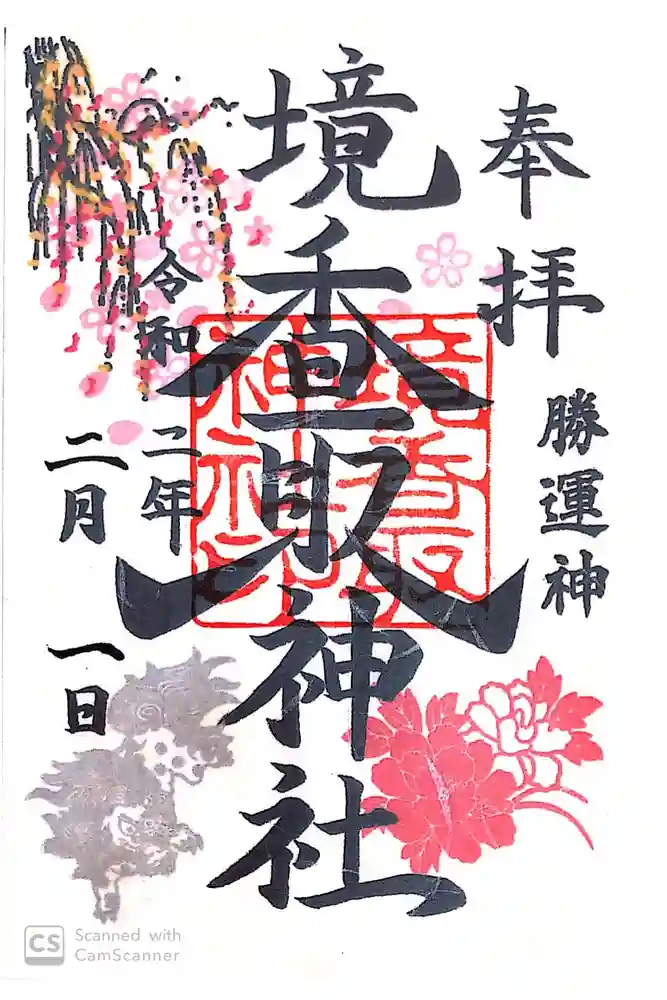 奉拝
勝運神
境香取神社
境香取神社印
令和二年
二月一日
CS Scanned with
CamScanner